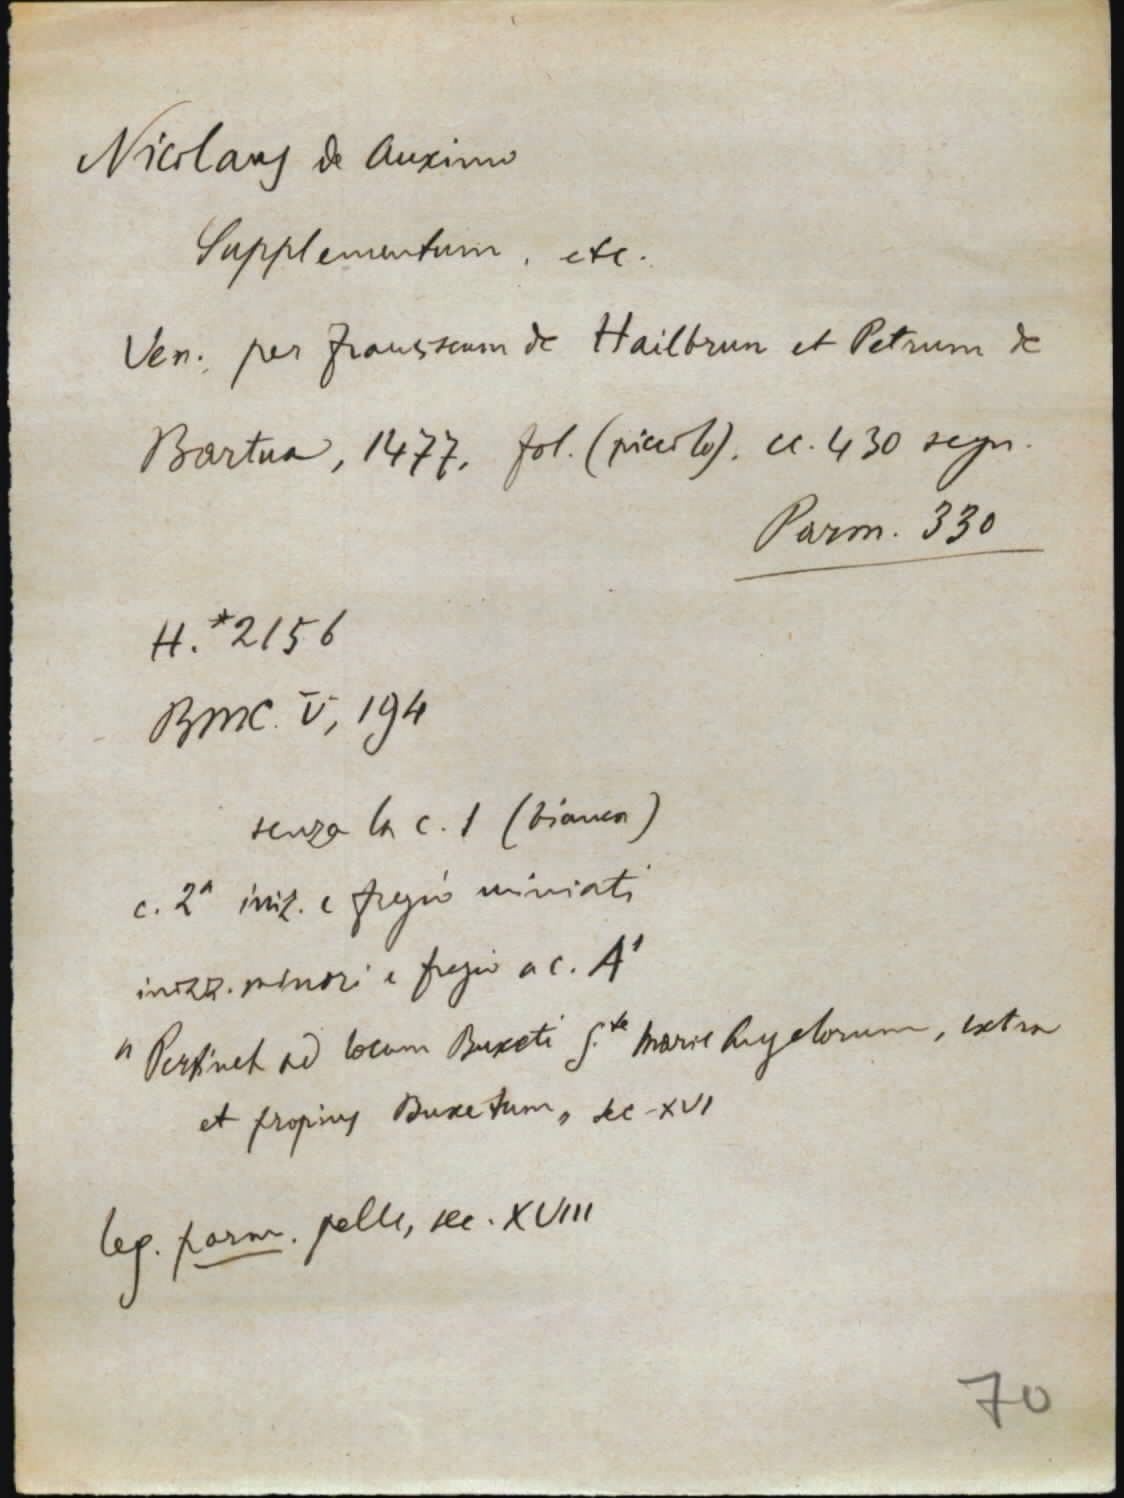 Nicolaus de Auximo
Supplementum, etc.
Ven. per Franciscum de Hailbrun et Petrum de
Bartua, 1477, fol. (piccolo). cc. 430 segn.
Parm. 330
H. *2156
BMC. V, 194
senza la c. 1 (bianca)
c. 2ª iniz. e fregio miniati
inizz. minori e fregio a c. A¹
"Pertinet ad locum Buxeti S.te Marie Angelorum, extra
et propius Buxetum„ sec. XVI
leg. parm. pelle, sec. XVIII
70